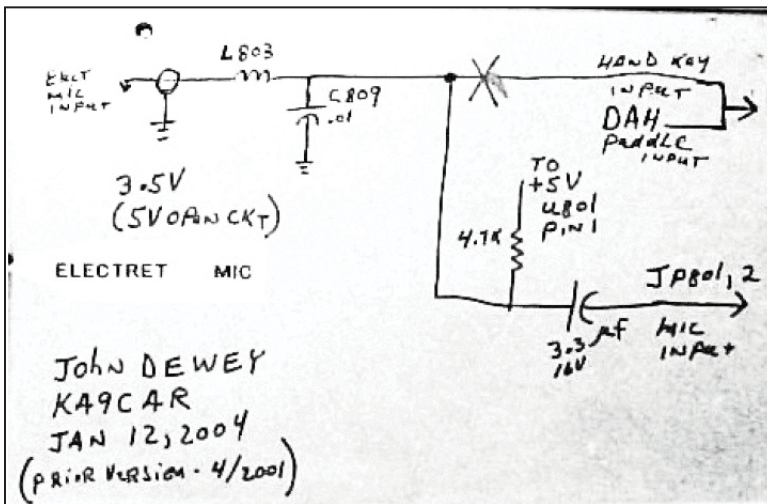 L803
ELECT
MIC
INPUT
C809
.01
HAND KEY
INPUT
DAH
PADDLE
INPUT
3.5V
(5V OPEN CKT)
TO
+5V
U801
PIN 1
4.7K
ELECTRET MIC
JP801, 2
MIC
INPUT
3.3 µf
16V
JOHN DEWEY
KA9CAR
JAN 12, 2004
(PRIOR VERSION - 4/2001)